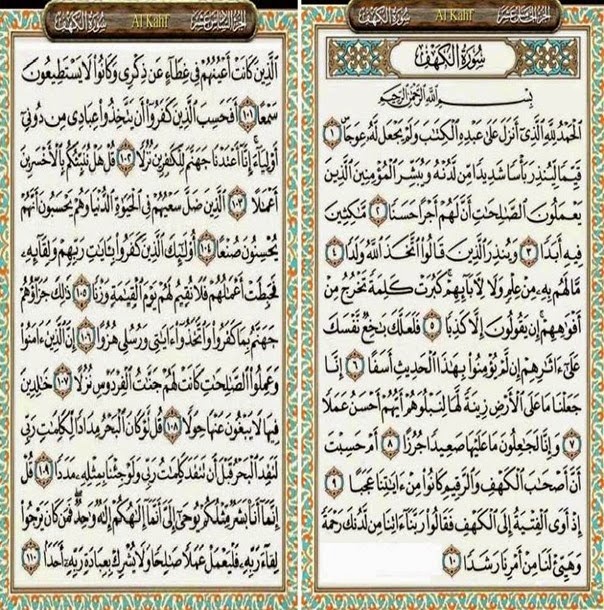 الجزء الخامس عشر
Al Kahf
سورة الكهف
سُورَةُ الكَهْفِ
بِسْمِ اللَّهِ الرَّحْمَٰنِ الرَّحِيمِ
الْحَمْدُ لِلَّهِ الَّذِي أَنزَلَ عَلَىٰ عَبْدِهِ الْكِتَابَ وَلَمْ يَجْعَل لَّهُ عِوَجًا ۜ ١
قَيِّمًا لِّيُنذِرَ بَأْسًا شَدِيدًا مِّن لَّدُنْهُ وَيُبَشِّرَ الْمُؤْمِنِينَ الَّذِينَ
يَعْمَلُونَ الصَّالِحَاتِ أَنَّ لَهُمْ أَجْرًا حَسَنًا ٢ مَّاكِثِينَ
فِيهِ أَبَدًا ٣ وَيُنذِرَ الَّذِينَ قَالُوا اتَّخَذَ اللَّهُ وَلَدًا ٤
مَّا لَهُم بِهِ مِنْ عِلْمٍ وَلَا لِآبَائِهِمْ ۚ كَبُرَتْ كَلِمَةً تَخْرُجُ مِنْ
أَفْوَاهِهِمْ ۚ إِن يَقُولُونَ إِلَّا كَذِبًا ٥ فَلَعَلَّكَ بَاخِعٌ نَّفْسَكَ
عَلَىٰ آثَارِهِمْ إِن لَّمْ يُؤْمِنُوا بِهَٰذَا الْحَدِيثِ أَسَفًا ٦ إِنَّا
جَعَلْنَا مَا عَلَى الْأَرْضِ زِينَةً لَّهَا لِنَبْلُوَهُمْ أَيُّهُمْ أَحْسَنُ عَمَلًا
٧ وَإِنَّا لَجَاعِلُونَ مَا عَلَيْهَا صَعِيدًا جُرُزًا ٨ أَمْ حَسِبْتَ
أَنَّ أَصْحَابَ الْكَهْفِ وَالرَّقِيمِ كَانُوا مِنْ آيَاتِنَا عَجَبًا ٩
إِذْ أَوَى الْفِتْيَةُ إِلَى الْكَهْفِ فَقَالُوا رَبَّنَا آتِنَا مِن لَّدُنكَ رَحْمَةً
وَهَيِّئْ لَنَا مِنْ أَمْرِنَا رَشَدًا ١٠
الجزء السادس عشر
Al Kahf
سورة الكهف
الَّذِينَ كَانَتْ أَعْيُنُهُمْ فِي غِطَاءٍ عَن ذِكْرِي وَكَانُوا لَا يَسْتَطِيعُونَ
سَمْعًا ١٠١ أَفَحَسِبَ الَّذِينَ كَفَرُوا أَن يَتَّخِذُوا عِبَادِي مِن دُونِي
أَوْلِيَاءَ ۚ إِنَّا أَعْتَدْنَا جَهَنَّمَ لِلْكَافِرِينَ نُزُلًا ١٠٢ قُلْ هَلْ نُنَبِّئُكُم بِالْأَخْسَرِينَ
أَعْمَالًا ١٠٣ الَّذِينَ ضَلَّ سَعْيُهُمْ فِي الْحَيَاةِ الدُّنْيَا وَهُمْ يَحْسَبُونَ أَنَّهُمْ
يُحْسِنُونَ صُنْعًا ١٠٤ أُولَٰئِكَ الَّذِينَ كَفَرُوا بِآيَاتِ رَبِّهِمْ وَلِقَائِهِ
فَحَبِطَتْ أَعْمَالُهُمْ فَلَا نُقِيمُ لَهُمْ يَوْمَ الْقِيَامَةِ وَزْنًا ١٠٥ ذَٰلِكَ جَزَاؤُهُمْ
جَهَنَّمُ بِمَا كَفَرُوا وَاتَّخَذُوا آيَاتِي وَرُسُلِي هُزُوًا ١٠٦ إِنَّ الَّذِينَ آمَنُوا
وَعَمِلُوا الصَّالِحَاتِ كَانَتْ لَهُمْ جَنَّاتُ الْفِرْدَوْسِ نُزُلًا ١٠٧ خَالِدِينَ
فِيهَا لَا يَبْغُونَ عَنْهَا حِوَلًا ١٠٨ قُل لَّوْ كَانَ الْبَحْرُ مِدَادًا لِّكَلِمَاتِ رَبِّي
لَنَفِدَ الْبَحْرُ قَبْلَ أَن تَنفَدَ كَلِمَاتُ رَبِّي وَلَوْ جِئْنَا بِمِثْلِهِ مَدَدًا ١٠٩ قُلْ
إِنَّمَا أَنَا بَشَرٌ مِّثْلُكُمْ يُوحَىٰ إِلَيَّ أَنَّمَا إِلَٰهُكُمْ إِلَٰهٌ وَاحِدٌ ۖ فَمَن كَانَ يَرْجُوا
لِقَاءَ رَبِّهِ فَلْيَعْمَلْ عَمَلًا صَالِحًا وَلَا يُشْرِكْ بِعِبَادَةِ رَبِّهِ أَحَدًا ١١٠